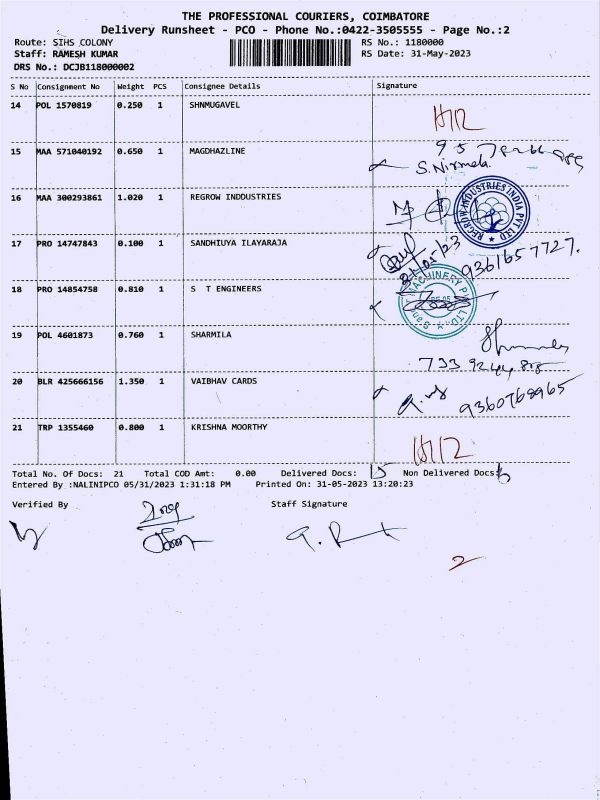 THE PROFESSIONAL COURIERS, COIMBATORE
Delivery Runsheet - PCO - Phone No.:0422-3505555 - Page No.:2
Route: SIHS COLONY RS No.: 1180000
Staff: RAMESH KUMAR RS Date: 31-May-2023
DRS No.: DCJB118000002
S No Consignment No Weight PCS Consignee Details Signature
14 POL 1570819 0.250 1 SHNMUGAVEL
15 MAA 571040192 0.650 1 MAGDHAZLINE
S.Nirmala
16 MAA 300293861 1.020 1 REGROW INDDUSTRIES
REGROW INDUSTRIES INDIA PVT LTD
17 PRO 14747843 0.100 1 SANDHIUYA ILAYARAJA
31/05/23
9361657727.
18 PRO 14854758 0.810 1 S T ENGINEERS
MACHINERY
19 POL 4601873 0.760 1 SHARMILA
20 BLR 425666156 1.350 1 VAIBHAV CARDS
9360768965
21 TRP 1355460 0.800 1 KRISHNA MOORTHY
Total No. Of Docs: 21 Total COD Amt: 0.00 Delivered Docs: 15 Non Delivered Docs:
Entered By :NALINIPCO 05/31/2023 1:31:18 PM Printed On: 31-05-2023 13:20:23
Verified By Staff Signature
2